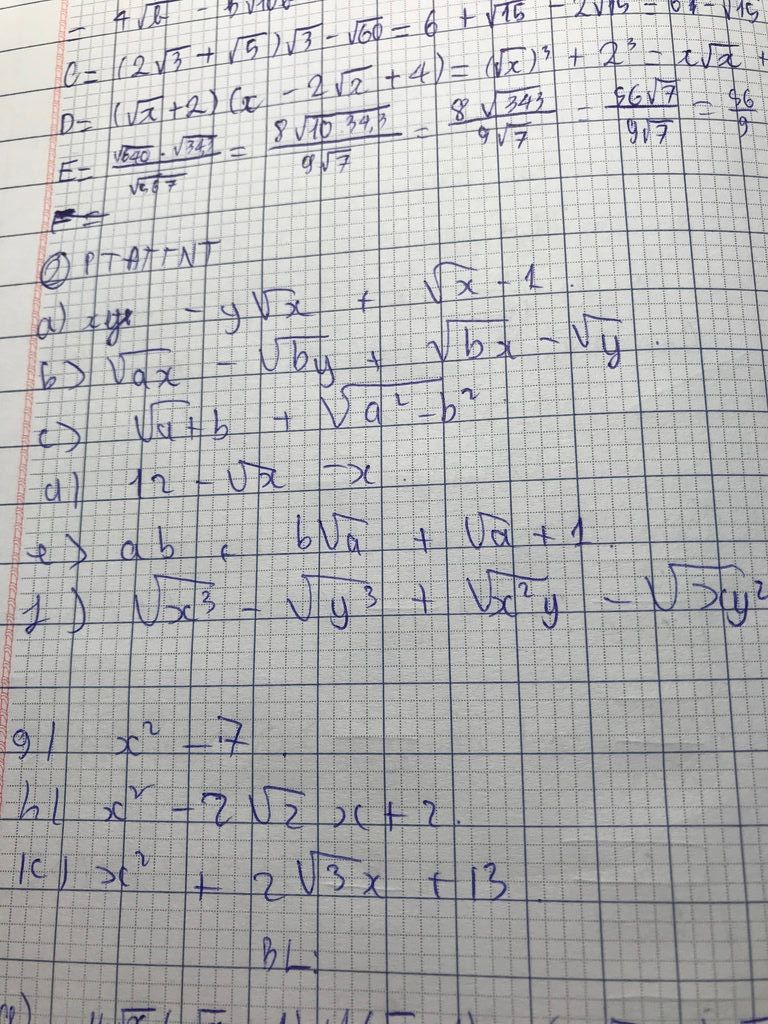 = 4√6 -
C = (2√3 + √5)√3 - √60 = 6 + √15 - 2√15 = 6 - √15
D = (√x + 2)(x - 2√x + 4) = (√x)³ + 2³ = x√x +
E = = 8√10 34,3 / 9√7 = 8√343 / 9√7 = 56√7 / 9√7 = 56 / 9
② PTATTNT
a) xy - y√x + √x - 1
b) √ax - √by + √bx - √y
c) √a+b + √a² - b²
d) 12 - √x - x
e) ab + b√a + √a + 1
f) √x³ - √y³ + √x²y - √xy²
g) x² - 7
h) x² - 2√2 x + 2
k) x² + 2√3x + 13
BL: